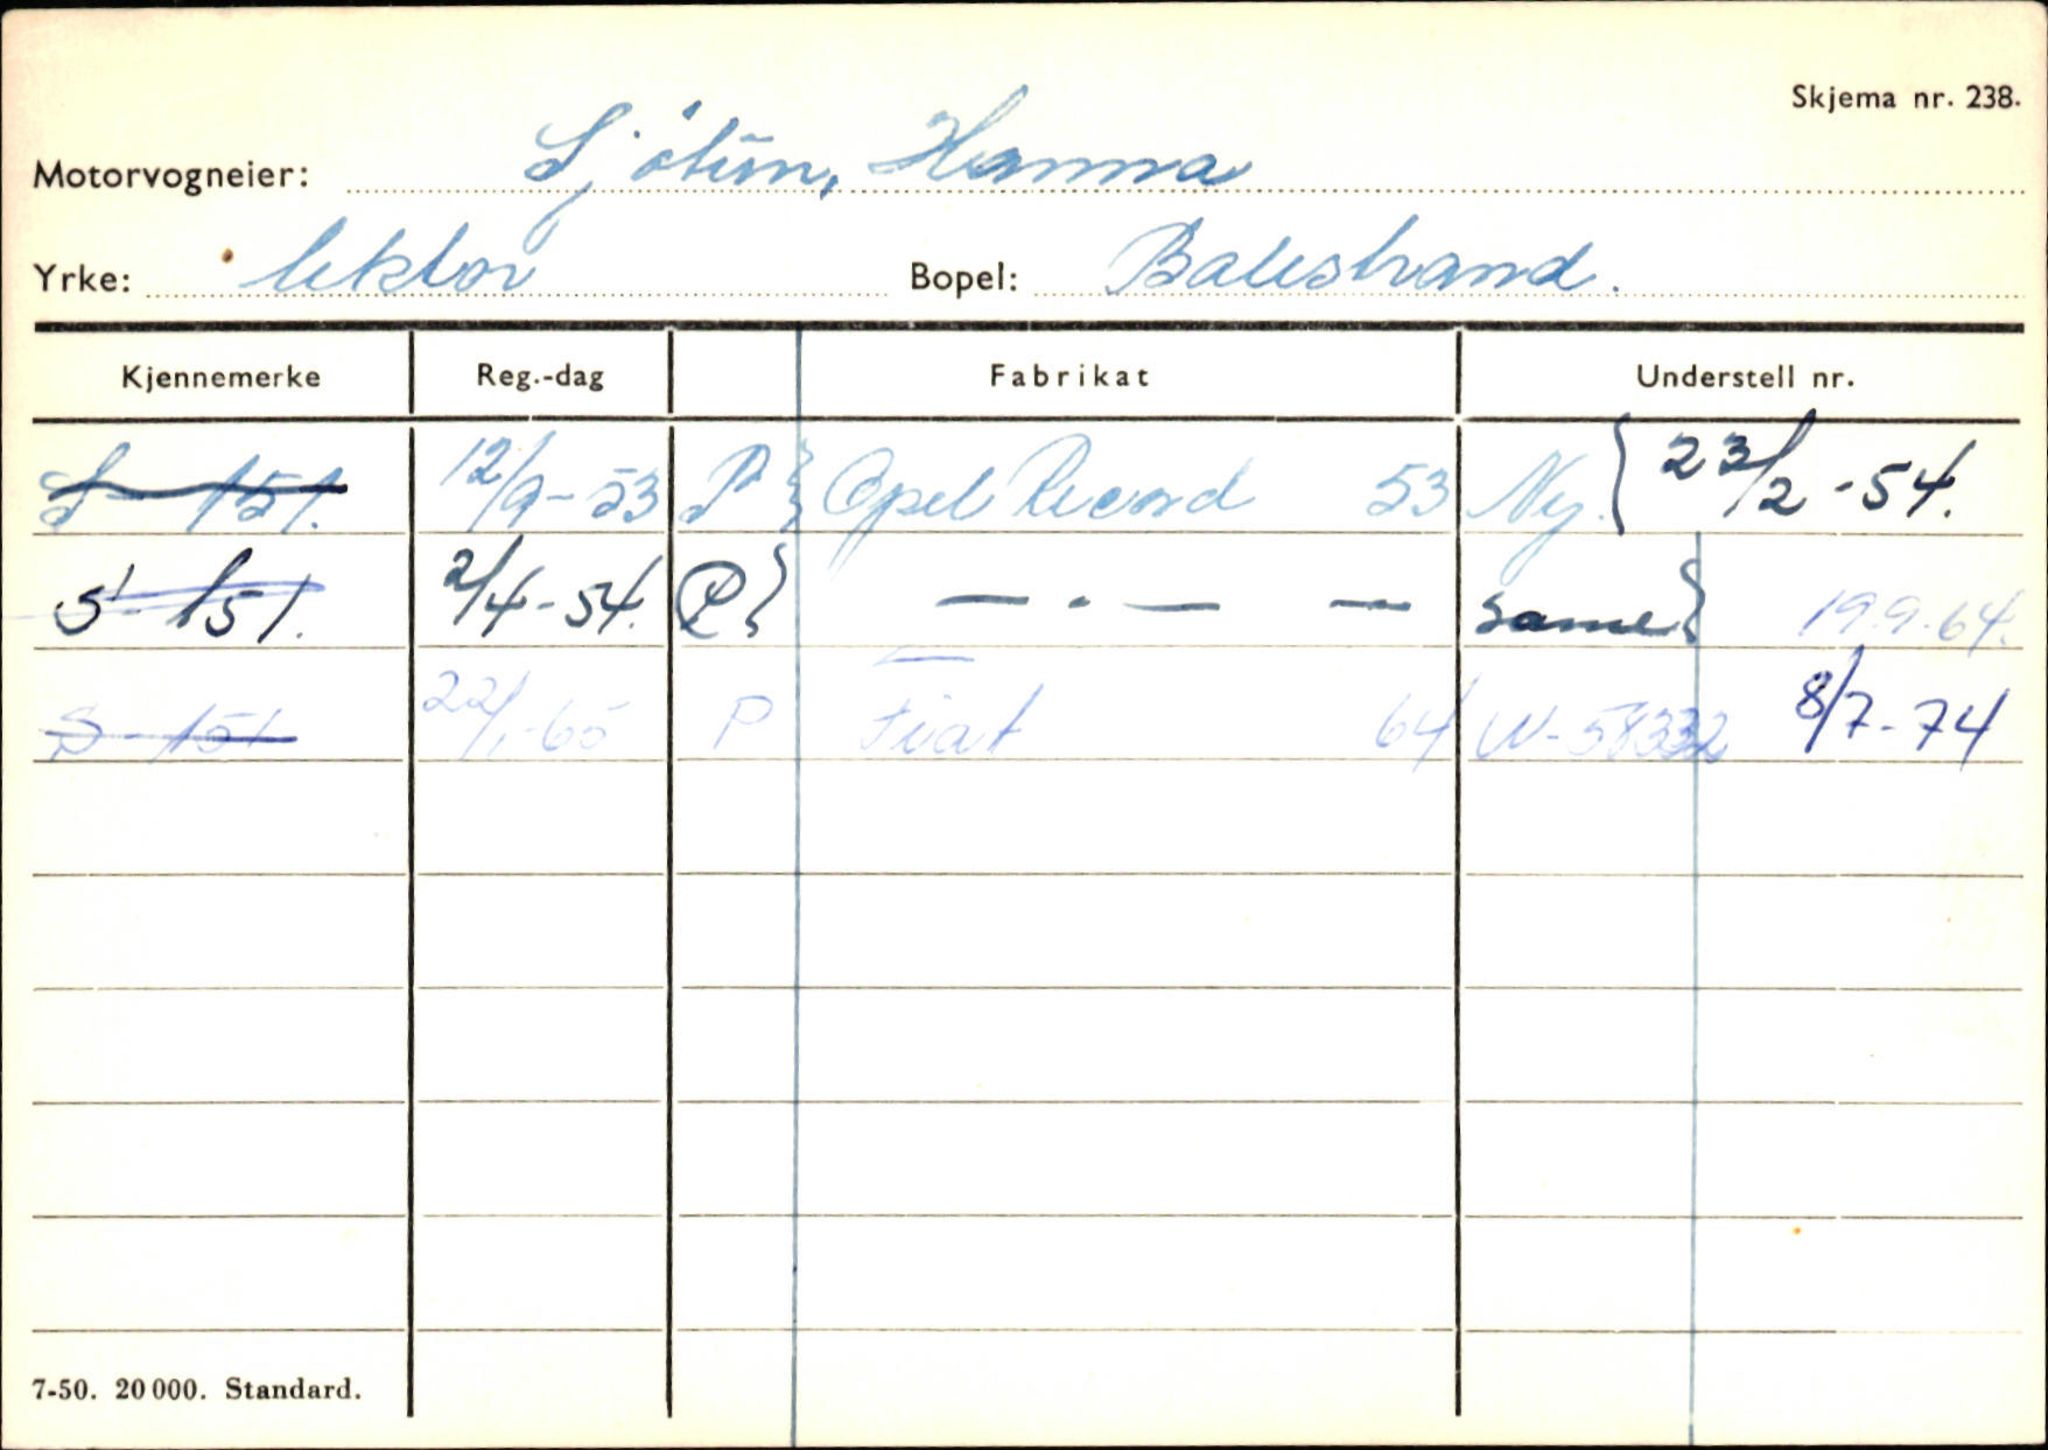 Skjema nr. 238.
Motorvogneier: Sjøtun, Hanna
Yrke: lektor Bopel: Balestrand.
Kjennemerke Reg.-dag Fabrikat Understell nr.
S-151. 12/9-53 P } Opel Record 53 Ny. { 23/2-54.
S-151. 2/4-54. P } — · — — same } 19.9.64.
S-151 22/1-65 P Fiat 64 W-58332 8/7-74
7-50. 20 000. Standard.